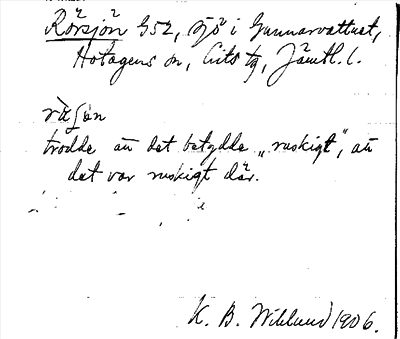 Rörsjön G52, sjö i Gunnarvattnet,
Hotagens sn, Lits tg, Jämtl. l.
trodde att det betydde „ruskigt", att
det var ruskigt där.
K. B. Wiklund 1906.